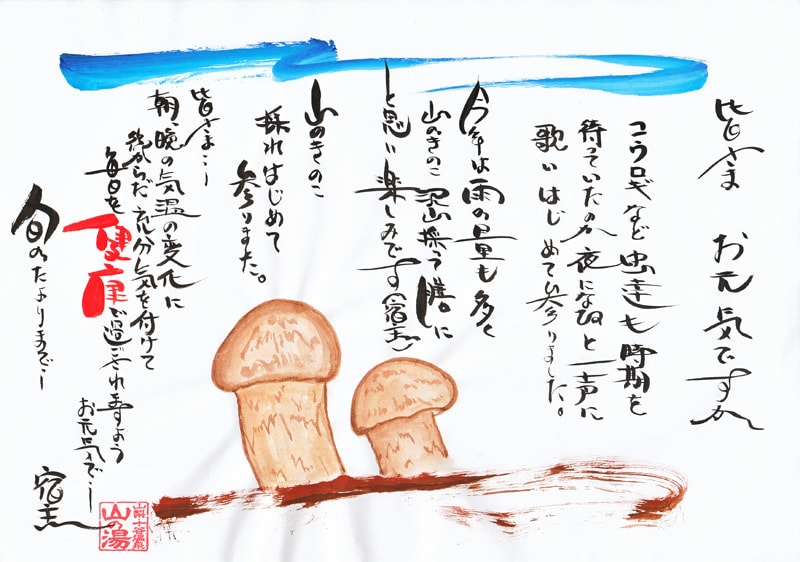 皆さま お元気ですか
コウロギなど虫達も時期を
待っていたのか夜になると一声に
歌いはじめて参りました。
今年は雨の量も多く
山のきのこ沢山採う膳に
と思い楽しみです(宿主)
山のきのこ
採れはじめて
参りました。
皆さまー
朝、晩の気温の変化に
からだ充分気を付けて
毎日を健康で過ごされますよう
お元気でー
旬のたよりまでー
宿主
山の湯